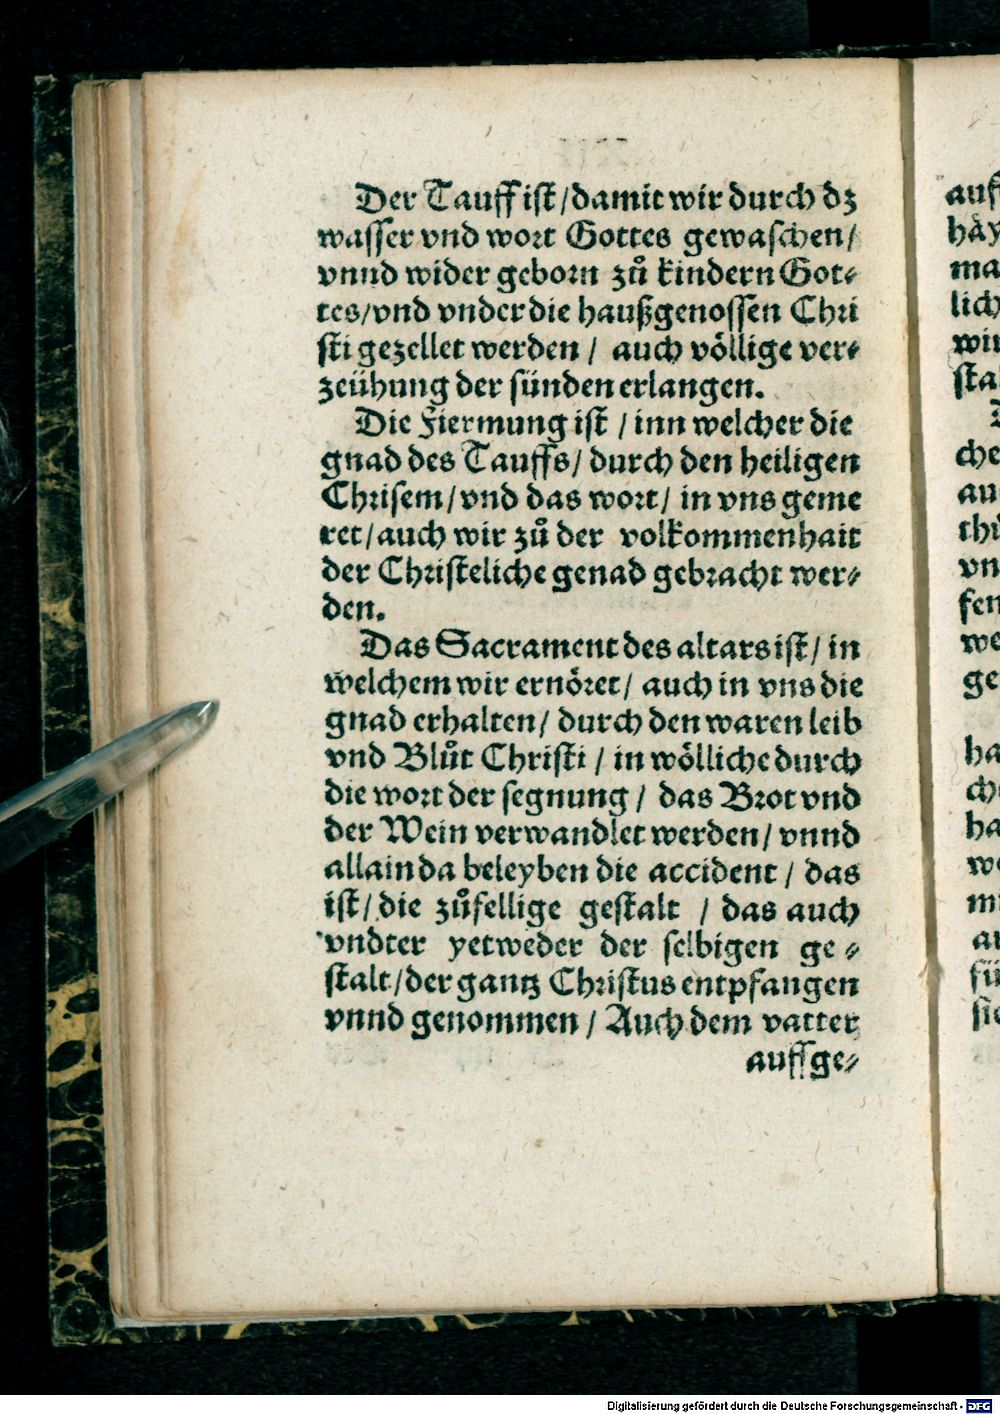 Der Tauff ist / damit wir durch dz
wasser vnd wort Gottes gewaschen /
vnnd wider geborn zů kindern Got⸗
tes / vnd vnder die haußgenossen Chri
sti gezellet werden / auch völlige ver⸗
zeühung der sünden erlangen.
Die Fiermung ist / inn welcher die
gnad des Tauffs / durch den heiligen
Chrisem / vnd das wort / in vns geme
ret / auch wir zů der volkommenhait
der Christeliche genad gebracht wer⸗
den.
Das Sacrament des altars ist / in
welchem wir ernöret / auch in vns die
gnad erhalten / durch den waren leib
vnd Blůt Christi / in wölliche durch
die wort der segnung / das Brot vnd
der Wein verwandlet werden / vnnd
allain da beleyben die accident / das
ist / die zůfellige gestalt / das auch
vndter yetweder der selbigen ge⸗
stalt / der gantz Christus entpfangen
vnnd genommen / Auch dem vatter
auffge⸗
auff
häy
ma
lich
wir
sta
che
au
thů
vn
fen
we
ge
ha
che
ha
we
mi
an
fü
sie
Digitalisierung gefördert durch die Deutsche Forschungsgemeinschaft - DFG